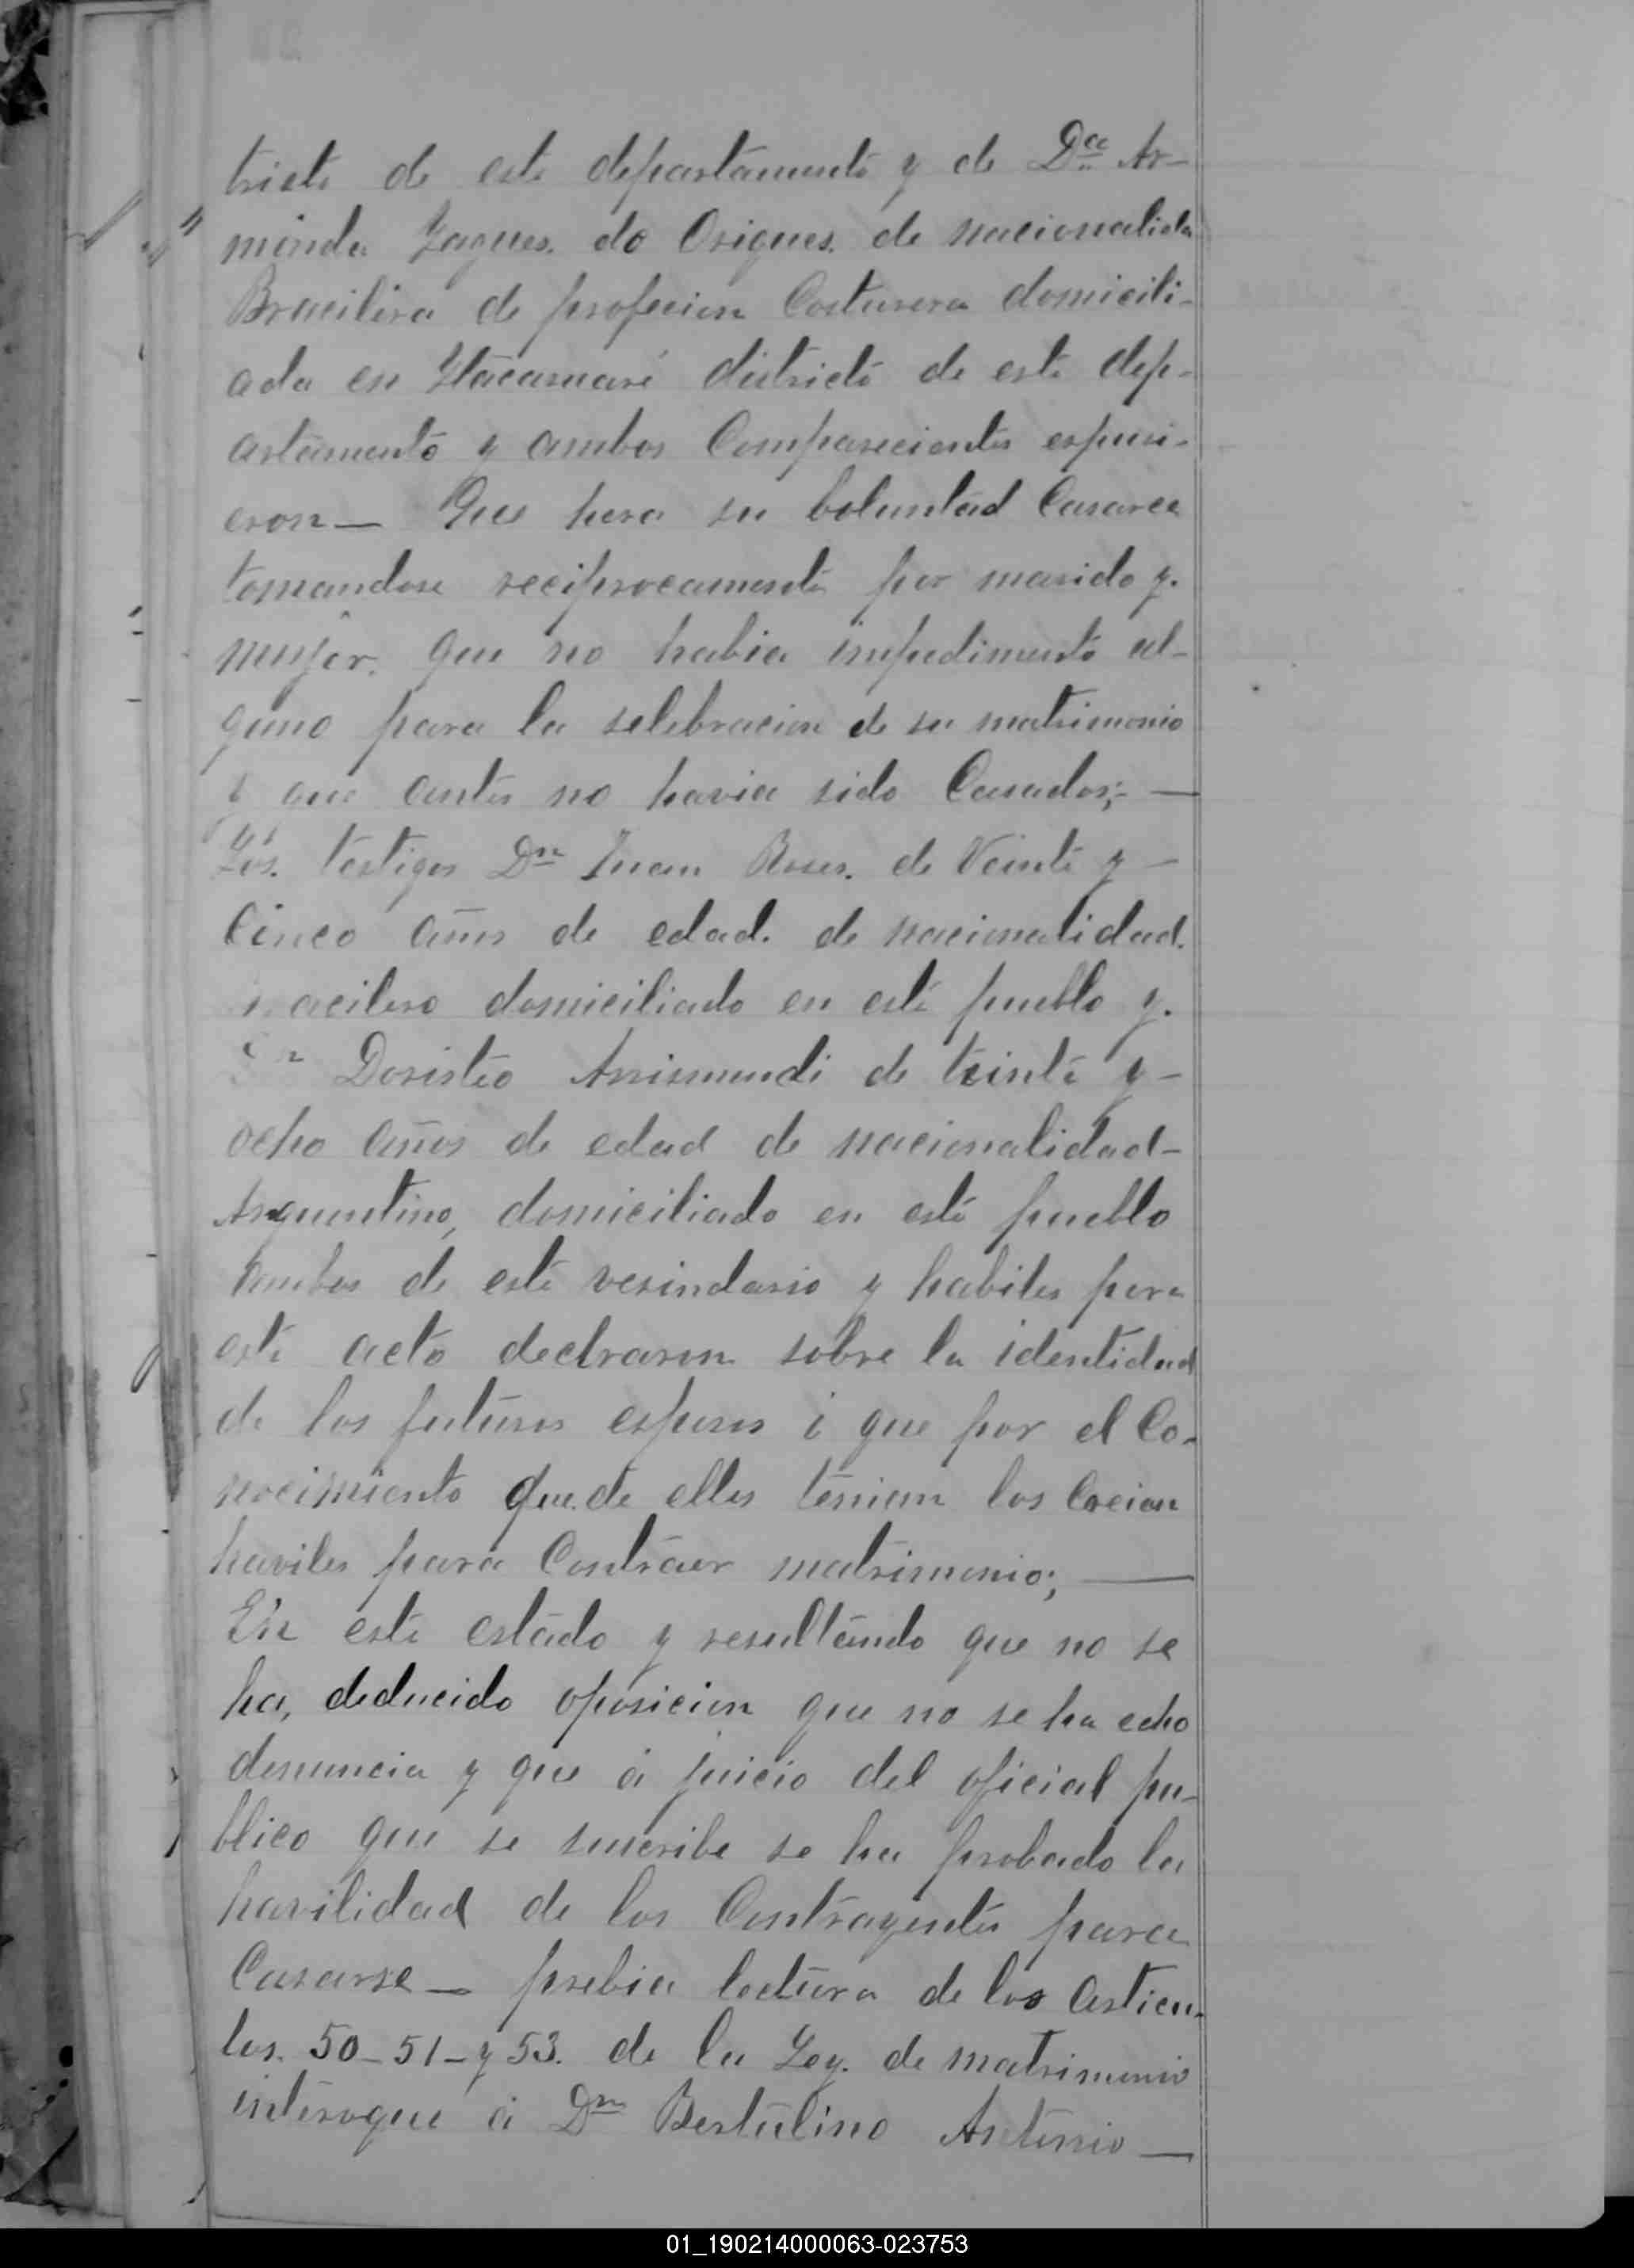 tricto de este departamento y de Dᵃ Ar-
minda Jaques. do Origues. de nacionalida
Bracilera de profecion Costurera domicili-
ada en Ytacaruaré districto de este dep-
artamento y ambos Comparecientes espusi-
eron— Que hera su boluntad Casarce
tomandose reciprocamente por marido y.
mujer. que no habia impedimento al-
guno para la selebracion de su matrimonio
y que antes no havia sido Casados;—
Los. testigos Dⁿ Juan Roses. de Veinte y—
Cinco años de edad. de nacionalidad.
racilero domiciliado en este pueblo y.
Dⁿ Doristeo Arrismendi de treinta y—
ocho años de edad de nacionalidad—
Arguentino, domiciliado en este pueblo
ambos de este vesindario y habiles para
este acto declraron sobre la identidad
de los futuros esposos i que por el Co-
nocimiento que de ellos tenian los Creian
haviles para Contraer matrimonio;—
En este estado y resultando que no se
ha, deducido oposicion que no se ha echo
denuncia y que á juicio del oficial pu-
blico que se suscribe se ha probado la
havilidad de los Contrayentes para
Casarse— prebia lectura de los articu-
los. 50-51-y 53. de la Ley. de matrimonio
interogue á Dⁿ Bertulino Antonio—
01_190214000063-023753